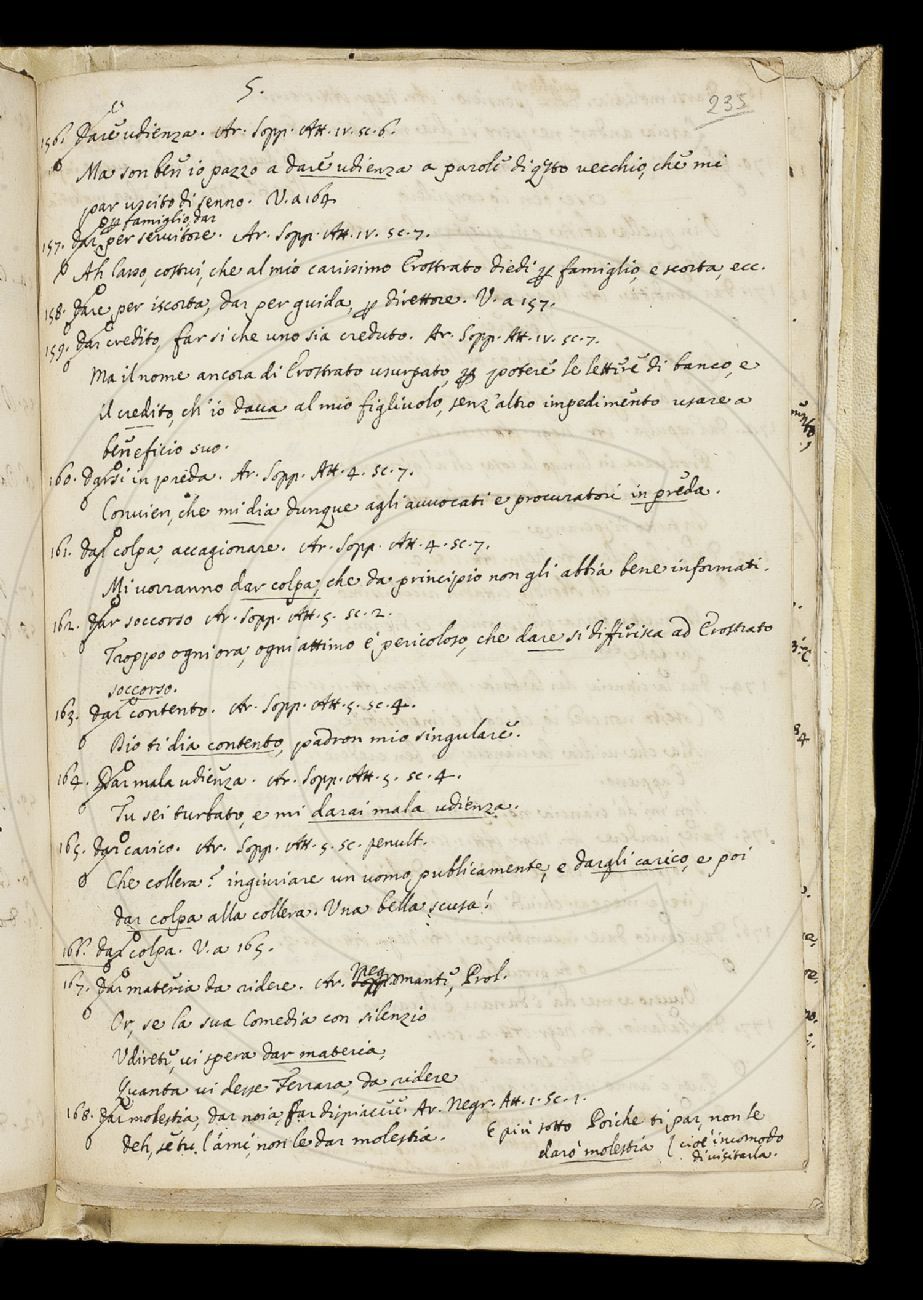 5.
235
156. Dare udienza. Ar. Sopp. Att. IV. sc. 6.
Ma son ben io pazzo a dare udienza a parole di qsto vecchio, che mi
par uscito di senno. V. a 164
o p famiglio, dar
157. Dar per servitore. Ar. Sopp. Att. IV. sc. 7.
Ah lasso, costui, che al mio carissimo Erostrato diedi p famiglio, e scorta, ecc.
158. Dare per iscorta, dar per guida, p direttore. V. a 157.
159. Dar credito, far si che uno sia creduto. Ar. Sopp. Att. IV. sc. 7.
Ma il nome ancora di Erostrato usurpato, p potere le lettere di banco, e
il credito, ch'io dava al mio figlivolo, senz'altro impedimento usare a
beneficio suo.
160. Darsi in preda. Ar. Sopp. Att. 4. sc. 7.
Convien, che mi dia dunque agli avvocati e procuratori in preda.
161. Dar colpa, accagionare. Ar. Sopp. Att. 4. sc. 7.
Mi vorranno dar colpa, che da principio non gli abbia bene informati.
162. Dar soccorso Ar. Sopp. Att. 5. sc. 2.
Troppo ogni ora, ogni attimo è pericoloso, che dare si differisca ad Erostrato
soccorso.
163. Dar contento. Ar. Sopp. Att. 5. sc. 4.
Dio ti dia contento, padron mio singulare.
164. Dar mala udienza. Ar. Sopp. Att. 5. sc. 4.
Tu sei turbato, e mi darai mala udienza.
165. Dar carico. Ar. Sopp. Att. 5. sc. penult.
Che collera? ingiuriare un uomo publicamente, e dargli carico, e poi
dar colpa alla collera. Una bella scusa!
166. Dar colpa. V. a 165.
167. Dar materia da ridere. Ar. Negromante, Prol.
Or, se la sua Comedia con silenzio
Udirete, vi spera dar materia,
Quanta vi desse Ferrara, da ridere
168. Dar molestia, dar noia, far dispiacere Ar. Negr. Att. 1. sc. 1.
Deh, se tu l'ami, non le dar molestia.
E più sotto Poiche ti par, non le
darò molestia [cioè incomodo
di visitarla.